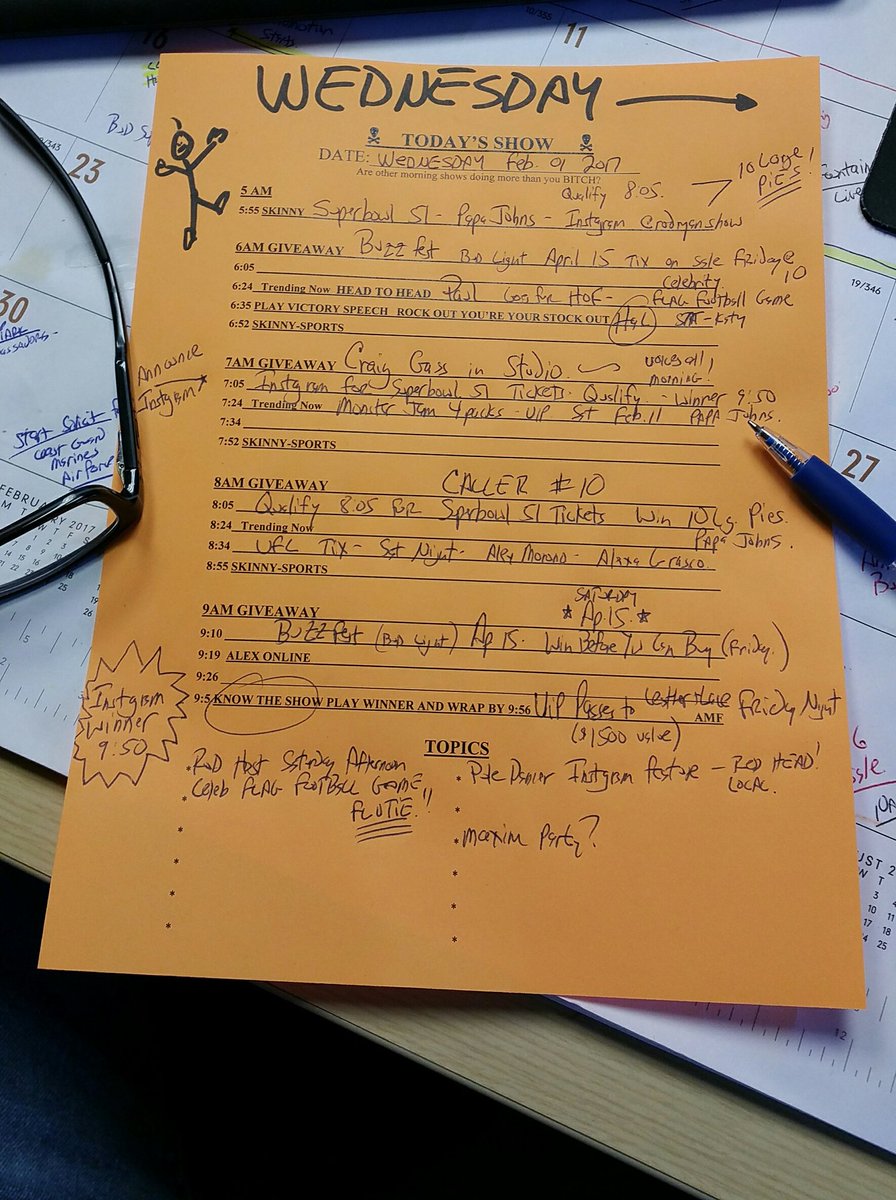 WEDNESDAY
TODAY'S SHOW
DATE: WEDNESDAY Feb. 01 2017
Are other morning shows doing more than you BITCH?
Qualify 8:05. 10 Large PiES!
5 AM
5:55 SKINNY Superbowl 51 - Papa Johns - Instagram @rodryanshow
6AM GIVEAWAY Buzzfest Bud Light April 15 Tix on sale Friday @ 10
6:05
Celebrity
6:24 Trending Now HEAD TO HEAD Paul Goes for HOF - FLAG Football Game
6:35 PLAY VICTORY SPEECH ROCK OUT YOU'RE YOUR STOCK OUT
6:52 SKINNY-SPORTS
Announce
Instagram
7AM GIVEAWAY Craig Gass in Studio voices all morning.
7:05 Instagram for Superbowl 51 Tickets. Qualify - Winner 9:50
7:24 Trending Now Monster Jam 4 packs - VIP Sat Feb. 11 PAPA Johns.
7:34
7:52 SKINNY-SPORTS
8AM GIVEAWAY CALLER # 10
8:05 Qualify 8:05 FOR Superbowl 51 Tickets Win 10 Lg. Pies.
8:24 Trending Now PAPA Johns.
8:34 UFC TIX - Sat Night - Alex Morono - Alexa Grasso
8:55 SKINNY-SPORTS
SATURDAY
9AM GIVEAWAY Ap. 15.
9:10 Buzzfest (Bud Light) Ap 15. Win Before You Can Buy (Friday.)
9:19 ALEX ONLINE
9:26
9:5 KNOW THE SHOW PLAY WINNER AND WRAP BY 9:56 VIP Passes to Friday Night
AMF
($1500 value)
Instagram
Winner
9:50
TOPICS
* Rod Host Saturday Afternoon
Celeb FLAG FOOTBALL GAME
FLUTIE!!
* Pole Dancer Instagram Feature - RED HEAD!
LOCAL.
* Maxim Party?
16
11
23
30
27
10/355
19/346
FEBRUARY 2017
Coast Guard
Marines
Airforce